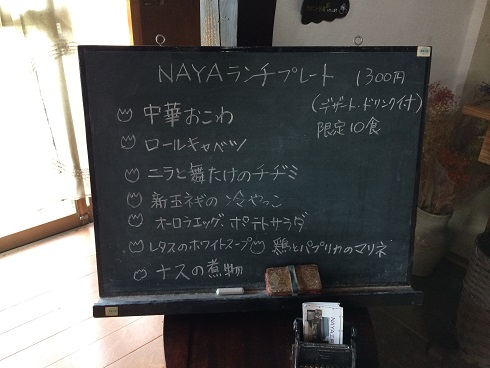 NAYAランチプレート 1300円
(デザート・ドリンク付)
限定10食
中華おこわ
ロールキャベツ
ニラと舞たけのチヂミ
新玉ネギの冷やっこ
オーロラエッグ. ポテトサラダ
レタスのホワイトスープ 鶏とパプリカのマリネ
ナスの煮物
NAYA